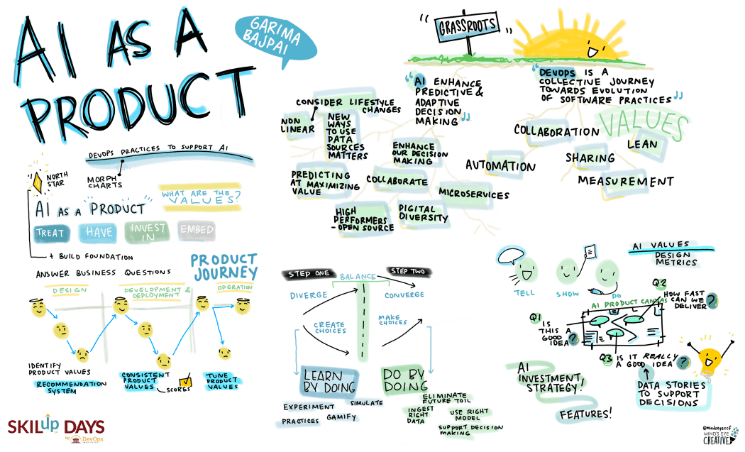 AI AS A
PRODUCT
GARIMA
BAJPAI
DEVOPS PRACTICES TO SUPPORT AI
NORTH
STAR
MORPH
CHARTS
AI AS A "PRODUCT"
WHAT ARE THE
VALUES?
TREAT
HAVE
INVEST
IN
EMBED
+ BUILD FOUNDATION
ANSWER BUSINESS QUESTIONS
PRODUCT
JOURNEY
DESIGN
DEVELOPMENT &
DEPLOYMENT
OPERATION
IDENTIFY
PRODUCT VALUES
RECOMMENDATION
SYSTEM
CONSISTENT
PRODUCT
VALUES
SCORES
TUNE
PRODUCT
VALUES
SKILup DAYS
DevOps
"GRASSROOTS"
CONSIDER LIFESTYLE
CHANGES
NON
LINEAR
NEW
WAYS
TO USE
DATA
SOURCES
MATTERS
"AI ENHANCE
PREDICTIVE &
ADAPTIVE
DECISION
MAKING"
ENHANCE
OUR DECISION
MAKING
PREDICTING
AT MAXIMIZING
VALUE
COLLABORATE
HIGH
PERFORMERS
-OPEN SOURCE
DIGITAL
DIVERSITY
MICROSERVICES
"DEVOPS IS A
COLLECTIVE JOURNEY
TOWARDS EVOLUTION
OF SOFTWARE PRACTICES"
VALUES
COLLABORATION
LEAN
AUTOMATION
SHARING
MEASUREMENT
STEP ONE
BALANCE
STEP TWO
DIVERGE
CONVERGE
CREATE
CHOICES
MAKE
CHOICES
LEARN
BY DOING
DO BY
DOING
EXPERIMENT
SIMULATE
PRACTICES
GAMIFY
ELIMINATE
FUTURE TOIL
INGEST
RIGHT
DATA
USE RIGHT
MODEL
SUPPORT DECISION
MAKING
TELL
SHOW
DO
AI VALUES
DESIGN
METRICS
AI PRODUCT CANVAS
Q1
IS
THIS A
GOOD
IDEA?
Q2
HOW FAST
CAN WE
DELIVER?
Q3 IS IT REALLY
A GOOD IDEA?
AI
INVESTMENT
STRATEGY!
FEATURES!
DATA STORIES
TO SUPPORT
DECISIONS
MIND'S EYE
CREATIVE